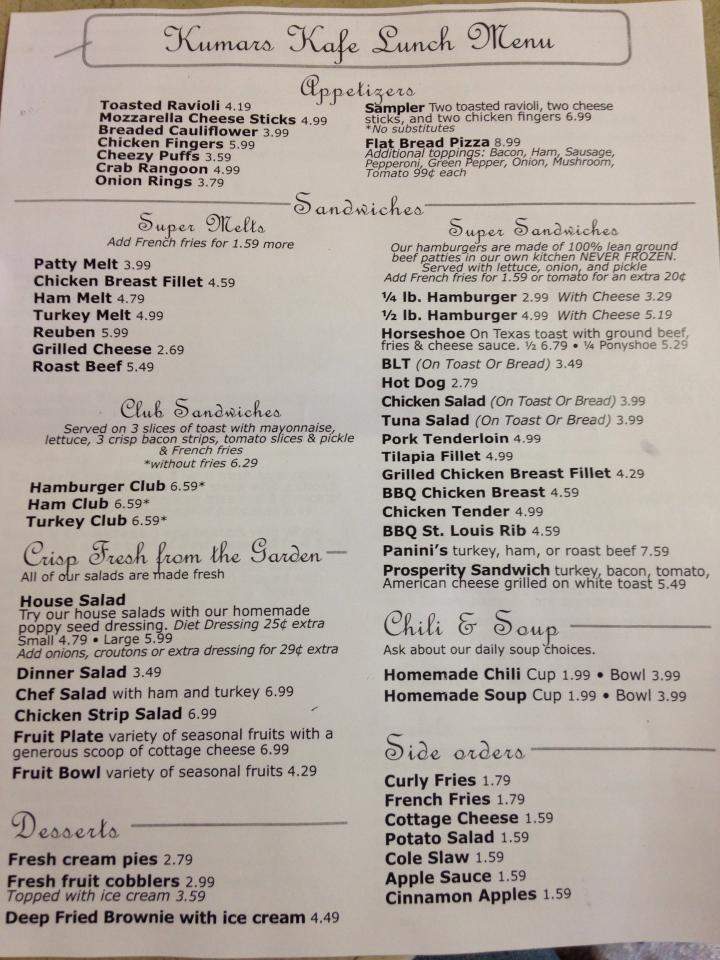 Kumars Kafe Lunch Menu
Appetizers
Toasted Ravioli 4.19
Mozzarella Cheese Sticks 4.99
Breaded Cauliflower 3.99
Chicken Fingers 5.99
Cheezy Puffs 3.59
Crab Rangoon 4.99
Onion Rings 3.79
Sampler Two toasted ravioli, two cheese
sticks, and two chicken fingers 6.99
*No substitutes
Flat Bread Pizza 8.99
Additional toppings: Bacon, Ham, Sausage,
Pepperoni, Green Pepper, Onion, Mushroom,
Tomato 99¢ each
Sandwiches
Super Melts
Add French fries for 1.59 more
Patty Melt 3.99
Chicken Breast Fillet 4.59
Ham Melt 4.79
Turkey Melt 4.99
Reuben 5.99
Grilled Cheese 2.69
Roast Beef 5.49
Club Sandwiches
Served on 3 slices of toast with mayonnaise,
lettuce, 3 crisp bacon strips, tomato slices & pickle
& French fries
*without fries 6.29
Hamburger Club 6.59*
Ham Club 6.59*
Turkey Club 6.59*
Crisp Fresh from the Garden
All of our salads are made fresh
House Salad
Try our house salads with our homemade
poppy seed dressing. Diet Dressing 25¢ extra
Small 4.79 • Large 5.99
Add onions, croutons or extra dressing for 29¢ extra
Dinner Salad 3.49
Chef Salad with ham and turkey 6.99
Chicken Strip Salad 6.99
Fruit Plate variety of seasonal fruits with a
generous scoop of cottage cheese 6.99
Fruit Bowl variety of seasonal fruits 4.29
Desserts
Fresh cream pies 2.79
Fresh fruit cobblers 2.99
Topped with ice cream 3.59
Deep Fried Brownie with ice cream 4.49
Super Sandwiches
Our hamburgers are made of 100% lean ground
beef patties in our own kitchen NEVER FROZEN.
Served with lettuce, onion, and pickle
Add French fries for 1.59 or tomato for an extra 20¢
¼ lb. Hamburger 2.99 With Cheese 3.29
½ lb. Hamburger 4.99 With Cheese 5.19
Horseshoe On Texas toast with ground beef,
fries & cheese sauce. ½ 6.79 • ¼ Ponyshoe 5.29
BLT (On Toast Or Bread) 3.49
Hot Dog 2.79
Chicken Salad (On Toast Or Bread) 3.99
Tuna Salad (On Toast Or Bread) 3.99
Pork Tenderloin 4.99
Tilapia Fillet 4.99
Grilled Chicken Breast Fillet 4.29
BBQ Chicken Breast 4.59
Chicken Tender 4.99
BBQ St. Louis Rib 4.59
Panini's turkey, ham, or roast beef 7.59
Prosperity Sandwich turkey, bacon, tomato,
American cheese grilled on white toast 5.49
Chili & Soup
Ask about our daily soup choices.
Homemade Chili Cup 1.99 • Bowl 3.99
Homemade Soup Cup 1.99 • Bowl 3.99
Side orders
Curly Fries 1.79
French Fries 1.79
Cottage Cheese 1.59
Potato Salad 1.59
Cole Slaw 1.59
Apple Sauce 1.59
Cinnamon Apples 1.59